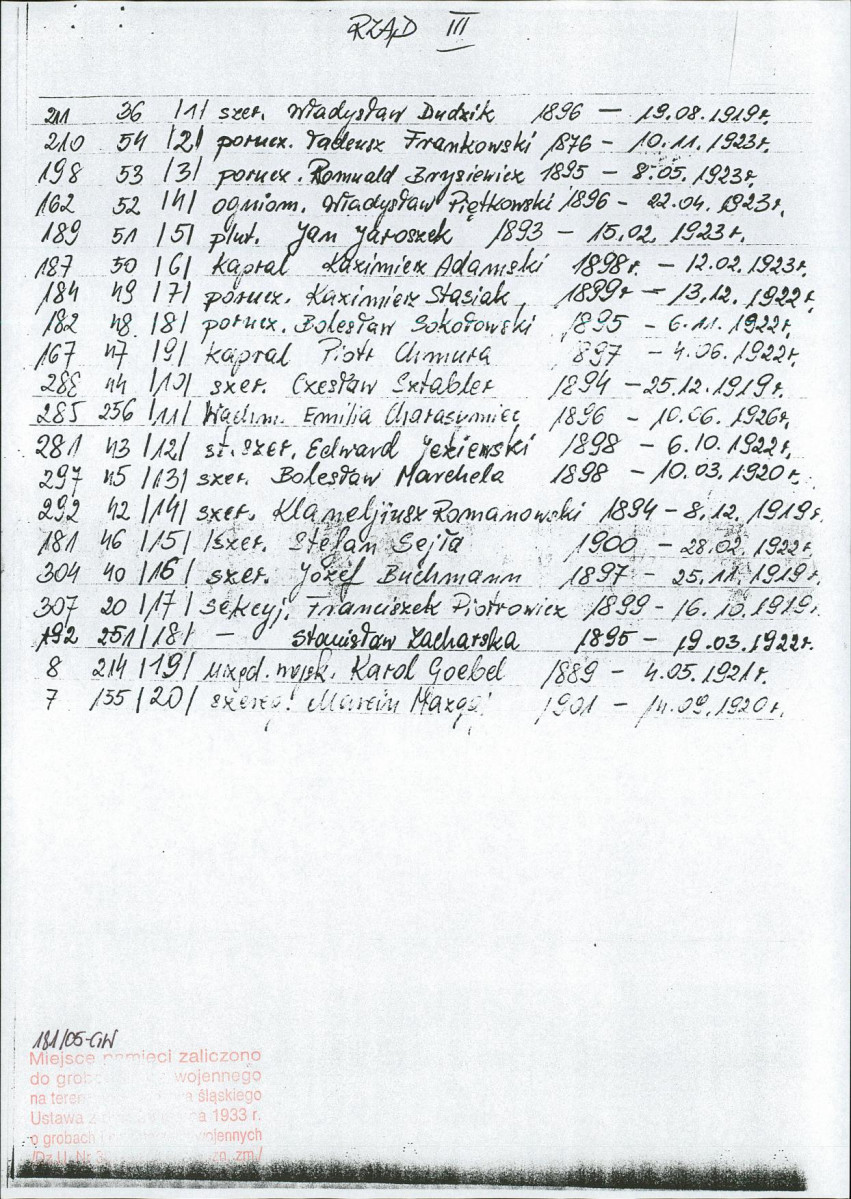 RZĄD III
211 36 /1/ szer. Władysław Dudzik 1896 – 19.08.1919r.
210 54 /2/ porucz. Tadeusz Frankowski 1876 – 10.11.1923r.
198 53 /3/ porucz. Romuald Brysiewicz 1895 – 8.05.1923r.
162 52 /4/ ogniom. Władysław Piętkowski 1896 – 22.04.1923r.
189 51 /5/ plut. Jan Jaroszek 1893 – 15.02.1923r.
187 50 /6/ kapral Kazimierz Adamski 1898r. – 12.02.1923r.
184 49 /7/ porucz. Kazimierz Stasiak 1899r – 13.12.1922r.
182 48 /8/ porucz. Bolesław Sokołowski 1895 – 6.11.1922r.
167 47 /9/ kapral Piotr Chmura 897 – 4.06.1922r.
288 44 /10/ szer. Czesław Sztabler 1894 – 25.12.1919r.
285 256 /11/ Wachm. Emilia Charasymiec 1896 – 10.06.1926r.
281 43 /12/ st. szer. Edward Jeziewski 1898 – 6.10.1922r.
297 45 /13/ szer. Bolesław Marchela 1898 – 10.03.1920r.
292 42 /14/ szer. Klameljiusz Romanowski 1894 – 8.12.1919r.
181 46 /15/ szer. Stefan Sejła 1900 – 28.02.1922r.
304 40 /16/ szer. Józef Buchmann 1897 – 25.11.1919r.
307 20 /17/ sekcyj. Franciszek Piotrowicz 1899 – 16.10.1919r.
192 251 /18/ – Stanisław Zacharska 1895 – 19.03.1922r.
8 214 /19/ urzęd. wojsk. Karol Goebel 1889 – 4.05.1921r.
7 155 /20/ szereg. Marcin 1901 – 14.09.1920r.
181/05-GW
Miejsce pamięci zaliczono
do wojennego
na śląskiego
Ustawa z 1933 r.
o grobach wojennych
/Dz.U. Nr zm./